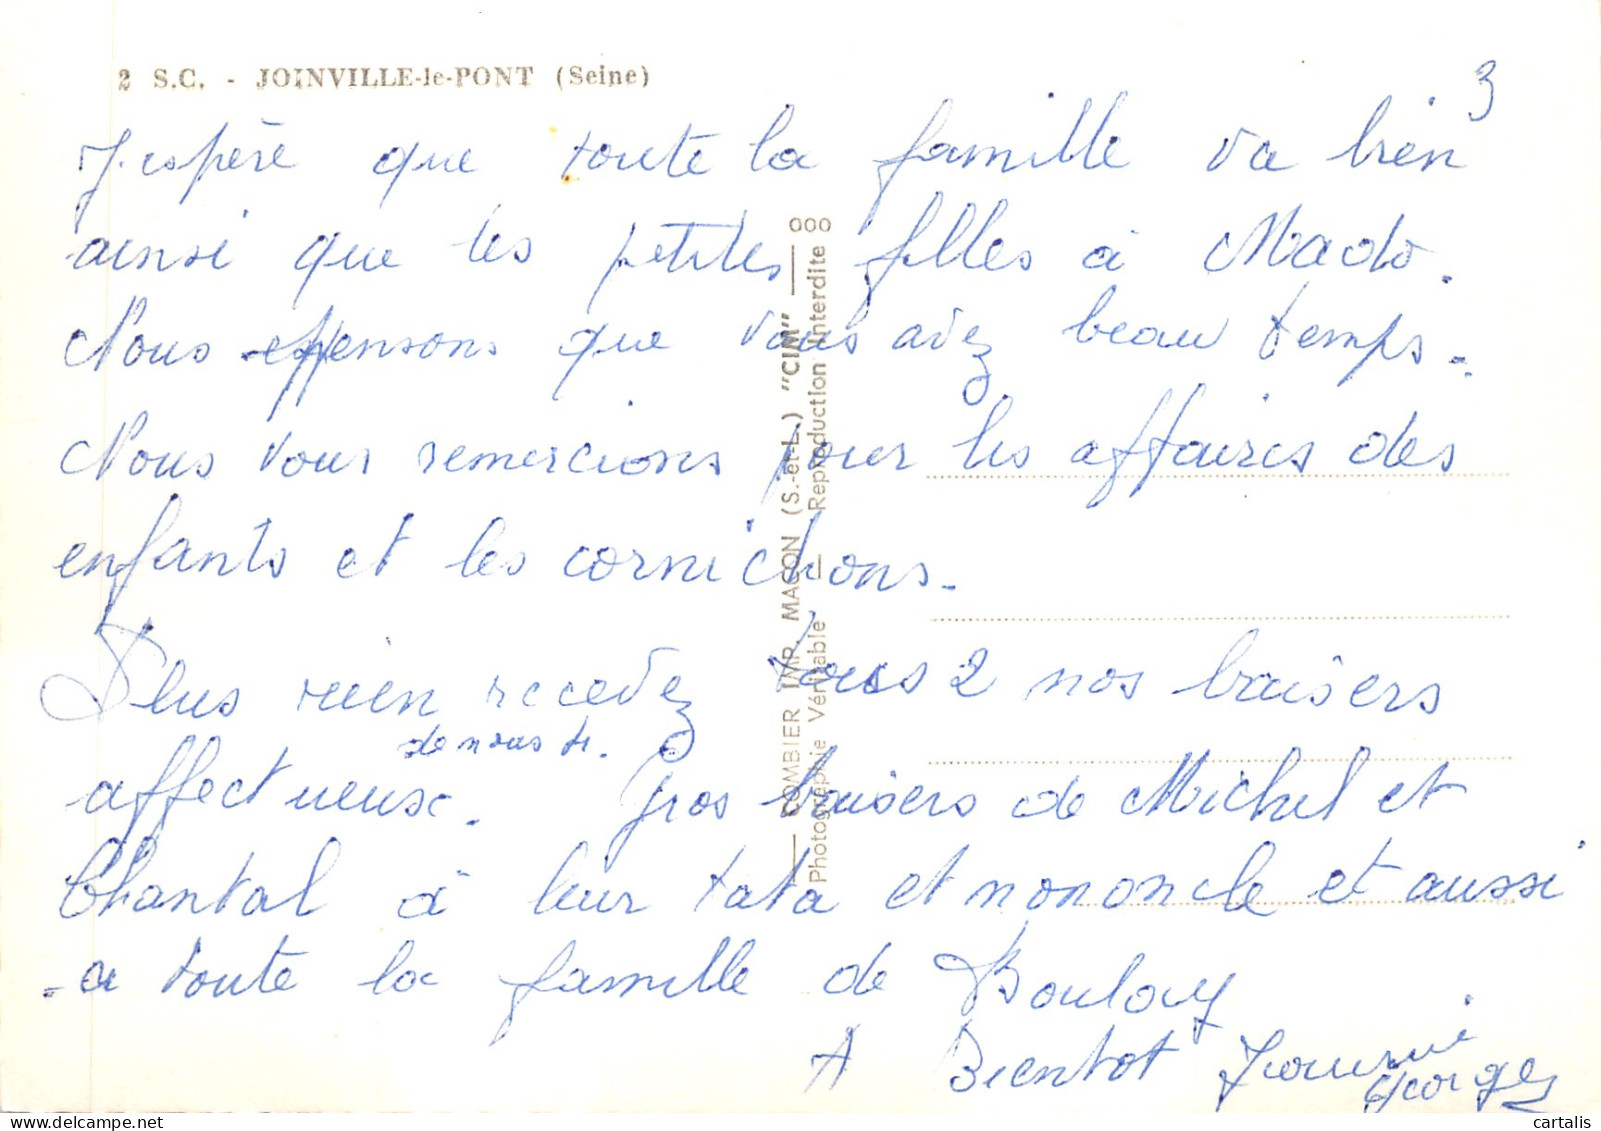 2 S.C. - JOINVILLE-le-PONT (Seine)
3
J'espère que toute la famille va bien
ainsi que les petites filles à Mado.
Nous pensons que vous avez beau temps.
Nous vous remercions pour les affaires des
enfants et les cornichons.
Plus rien recevez tous 2 nos baisers
de nous 4.
affectueuse. Gros baisers de Michel et
Chantal à leur tata et nononcle et aussi
a toute la famille de Boulay
A Bientot
Georges
COMBIER IMP. MACON (S.-et-L.) "CIM"
Photographie Véritable — Reproduction Interdite
cartalis.com